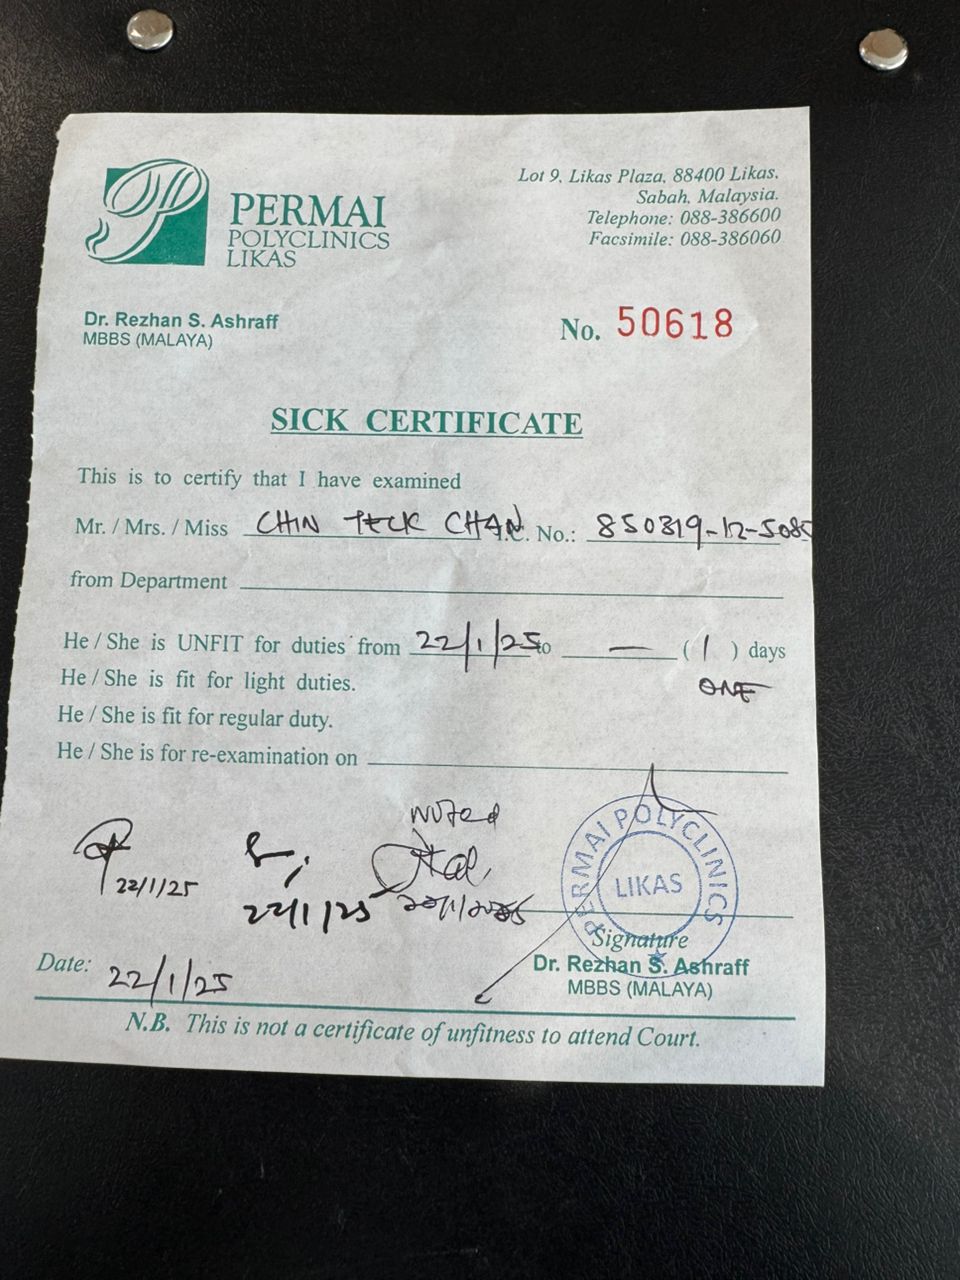 PERMAI
POLYCLINICS
LIKAS
Lot 9, Likas Plaza, 88400 Likas.
Sabah, Malaysia.
Telephone: 088-386600
Facsimile: 088-386060
Dr. Rezhan S. Ashraff
MBBS (MALAYA)
No. 50618
SICK CERTIFICATE
This is to certify that I have examined
Mr. / Mrs. / Miss CHIN TECK CHAN I.C. No.: 850319-12-5085
from Department
He / She is UNFIT for duties from 22/1/25 to — ( 1 ) days
ONE
He / She is fit for light duties.
He / She is fit for regular duty.
He / She is for re-examination on
Noted
22/1/25
22/1/25
22/1/2025
PERMAI POLYCLINICS
LIKAS
Signature
Dr. Rezhan S. Ashraff
MBBS (MALAYA)
Date: 22/1/25
N.B. This is not a certificate of unfitness to attend Court.